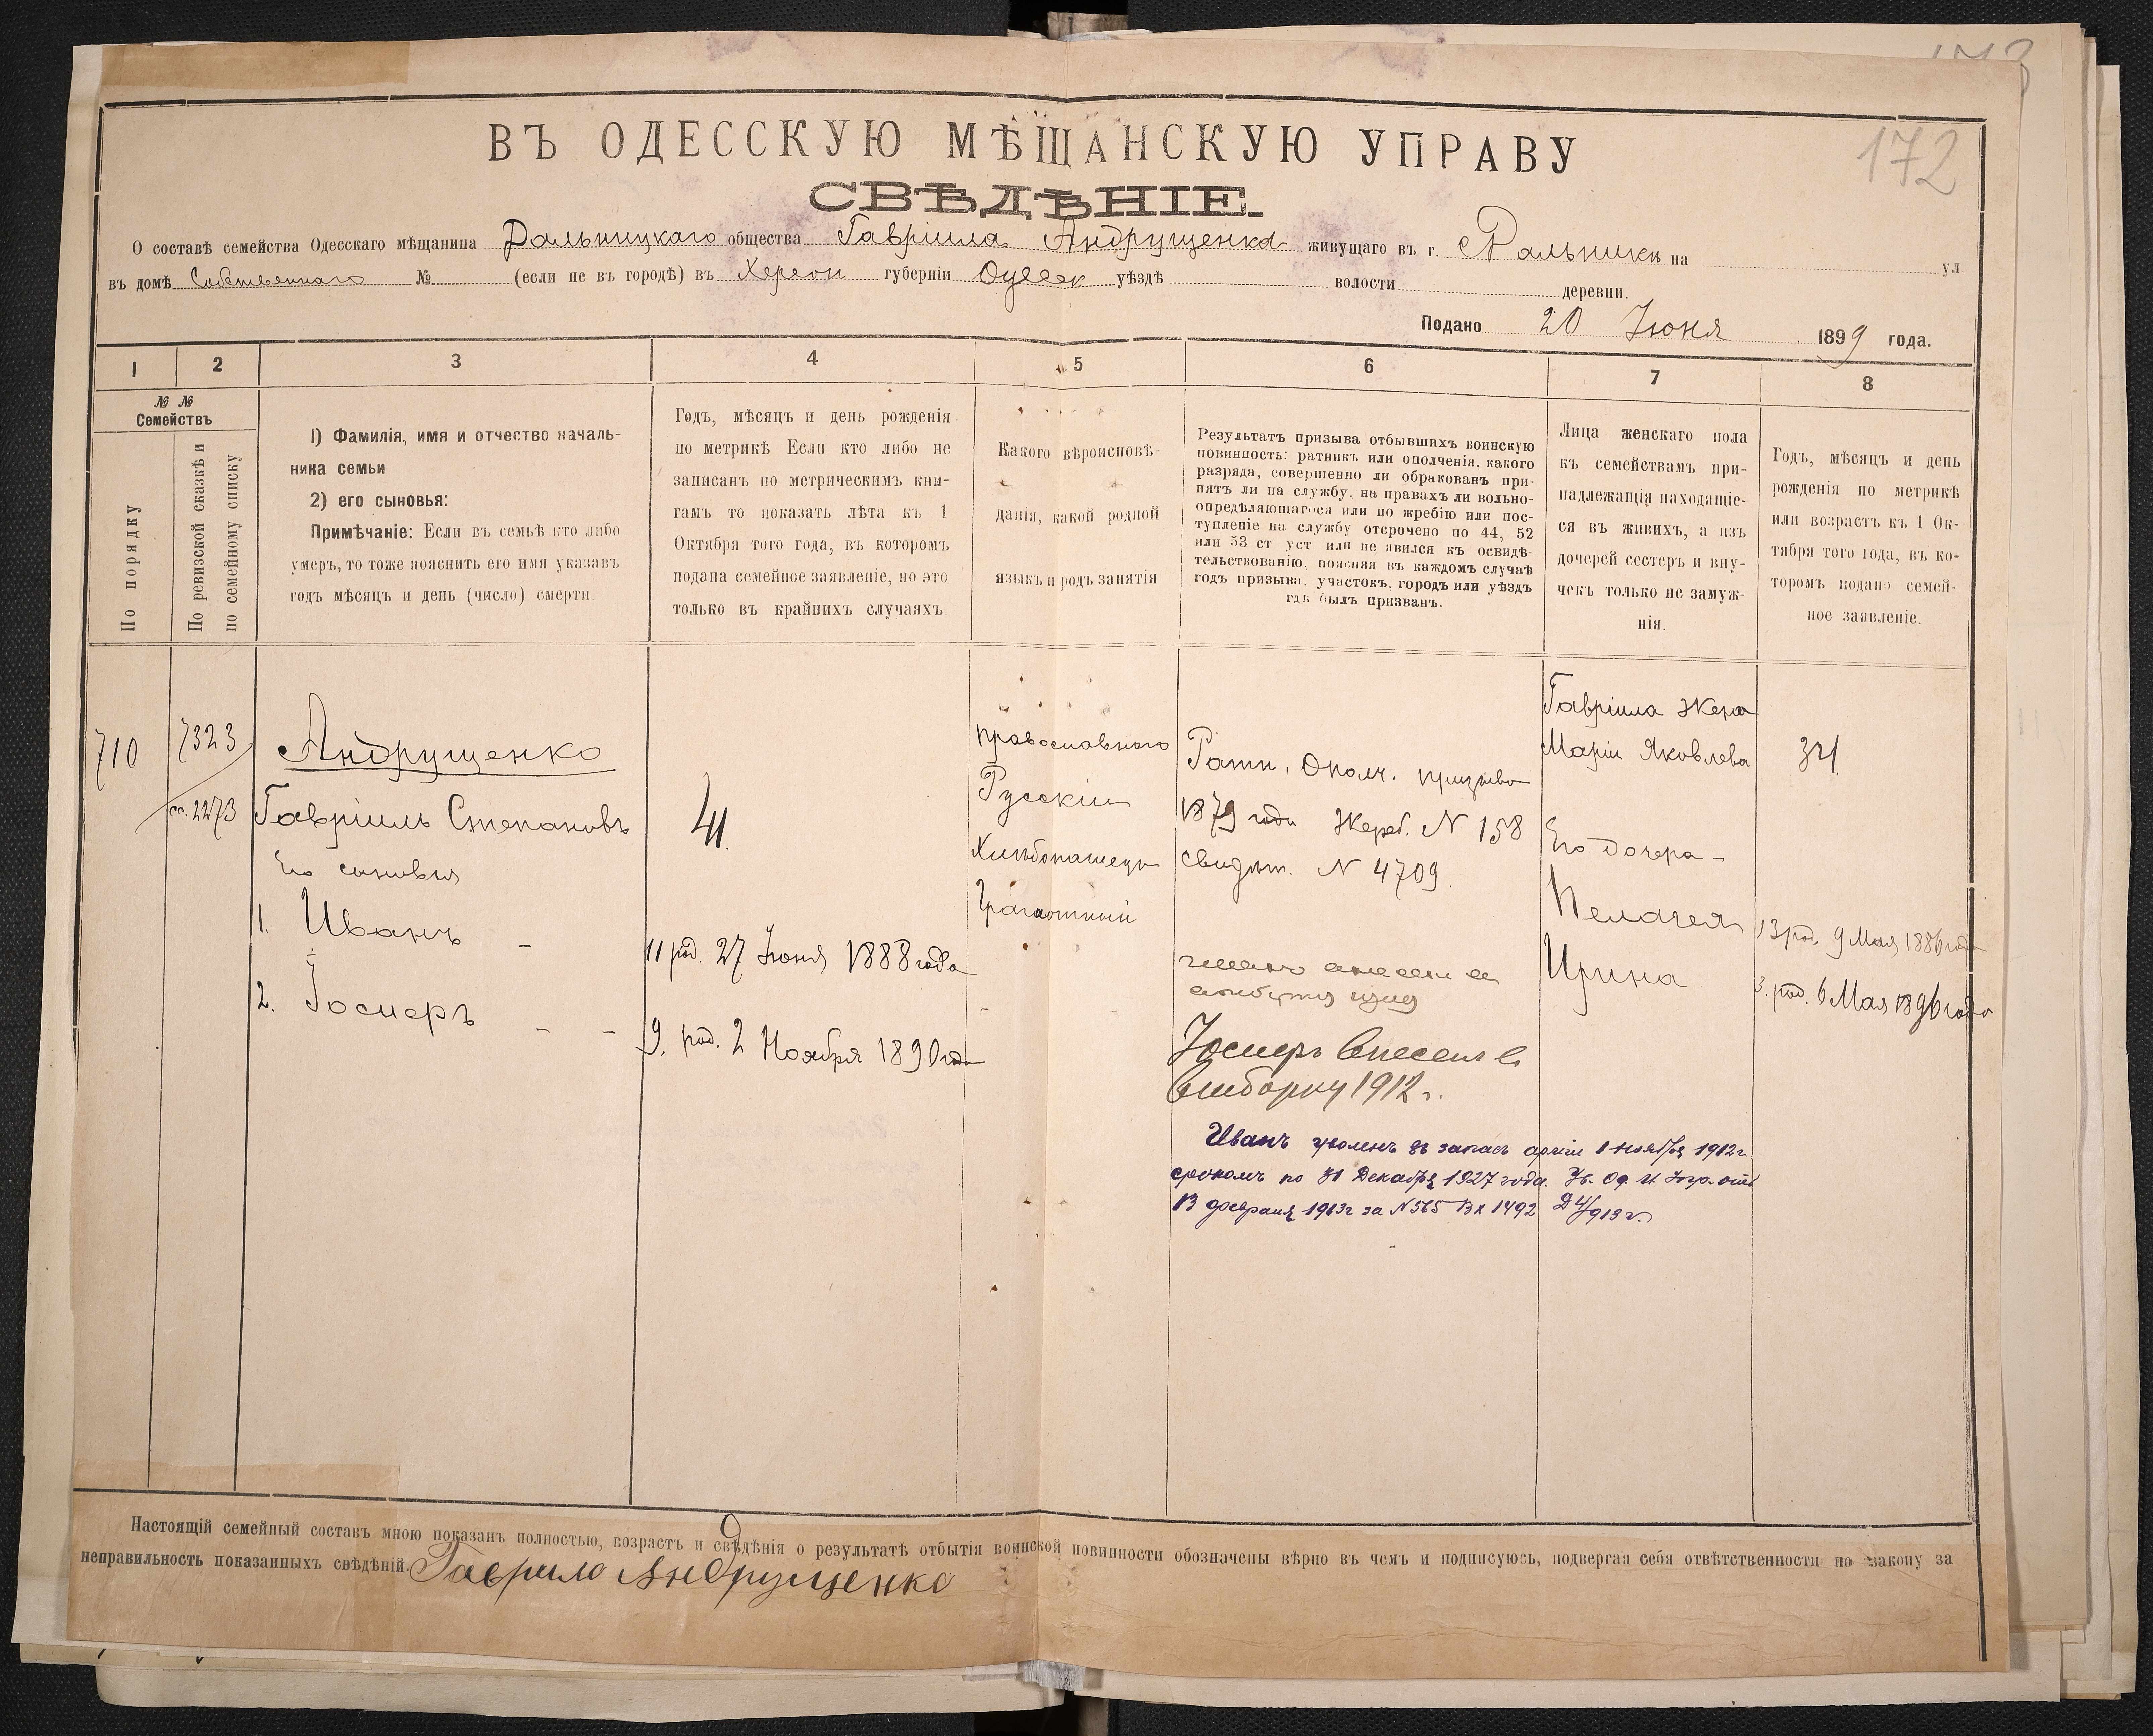 172
ВЪ ОДЕССКУЮ МѢЩАНСКУЮ УПРАВУ
СВѢДѢНІЕ.
О составѣ семейства Одесскаго мѣщанина Дальницкаго общества Гавріила Андрущенка живущаго въ г. Дальники на ул
въ домѣ Собственнаго № (если не въ городѣ) въ Херсон губерніи Одесск уѣздѣ волости деревни.
Подано 20 Іюня 1899 года.
1 2 3 4 5 6 7 8
№ №
Семействъ
По порядку
По ревизской сказкѣ и
по семейному списку
1) Фамилія, имя и отчество началь-
ника семьи
2) его сыновья:
Примѣчаніе: Если въ семьѣ кто либо
умеръ, то тоже пояснить его имя указавъ
годъ мѣсяцъ и день (число) смерти.
Годъ, мѣсяцъ и день рожденія
по метрикѣ Если кто либо не
записанъ по метрическимъ кни-
гамъ то показать лѣта къ 1
Октября того года, въ которомъ
подана семейное заявленіе, но это
только въ крайнихъ случаяхъ
Какого вѣроисповѣ-
данія, какой родной
языкъ и родъ занятія
Результатъ призыва отбывшихъ воинскую
повинность: ратникъ или ополченія, какого
разряда, совершенно ли обракованъ при-
нятъ ли на службу, на правахъ ли вольно-
опредѣляющагося или по жребію или пос-
тупленіе на службу отсрочено по 44, 52
или 53 ст уст или не явился къ освидѣ-
тельствованію, поясняя въ каждомъ случаѣ
годъ призыва, участокъ, городъ или уѣздъ
гдѣ былъ призванъ.
Лица женскаго пола
къ семействамъ при-
надлежащія находящіе-
ся въ живихъ, а изъ
дочерей сестеръ и вну-
чекъ только не замуж-
нія.
Годъ, мѣсяцъ и день
рожденія по метрикѣ
или возрастъ къ 1 Ок-
тября того года, въ ко-
торомъ подано семей-
ное заявленіе.
710
7323
2273
Андрущенко
Гавріилъ Степановъ
Его сыновья
1. Иванъ
2. Іосифъ
41.
11 род. 27 Іюня 1888 года
9. род. 2 Ноября 1890 год
православнаго
Русскій
Хлѣбопашецъ
Грамотный
Ратн. Ополч. призыва
1879 года Жереб. N 158
Свидѣт. N 4709.
Іосифъ внесенъ в
выборку 1912 г.
Иванъ уволенъ въ запасъ арміи 1 ноября 1912 г
срокомъ по 31 Декабря 1927 года.
13 февраля 1913 г за N 565 Вх 1492
Гавріила Жена
Марія Яковлева
Его дочера -
Пелагея
Ирина
34.
13 род. 9 Мая 1886 года
3. род. 6 Мая 1896 года
Настоящій семейный составъ мною показанъ полностью, возрастъ и свѣдѣнія о результатѣ отбытія воинской повинности обозначены вѣрно въ чемъ и подписуюсь, подвергая себя отвѣтственности по закону за
неправильность показанныхъ свѣдѣній. Гаврило Андрущенко